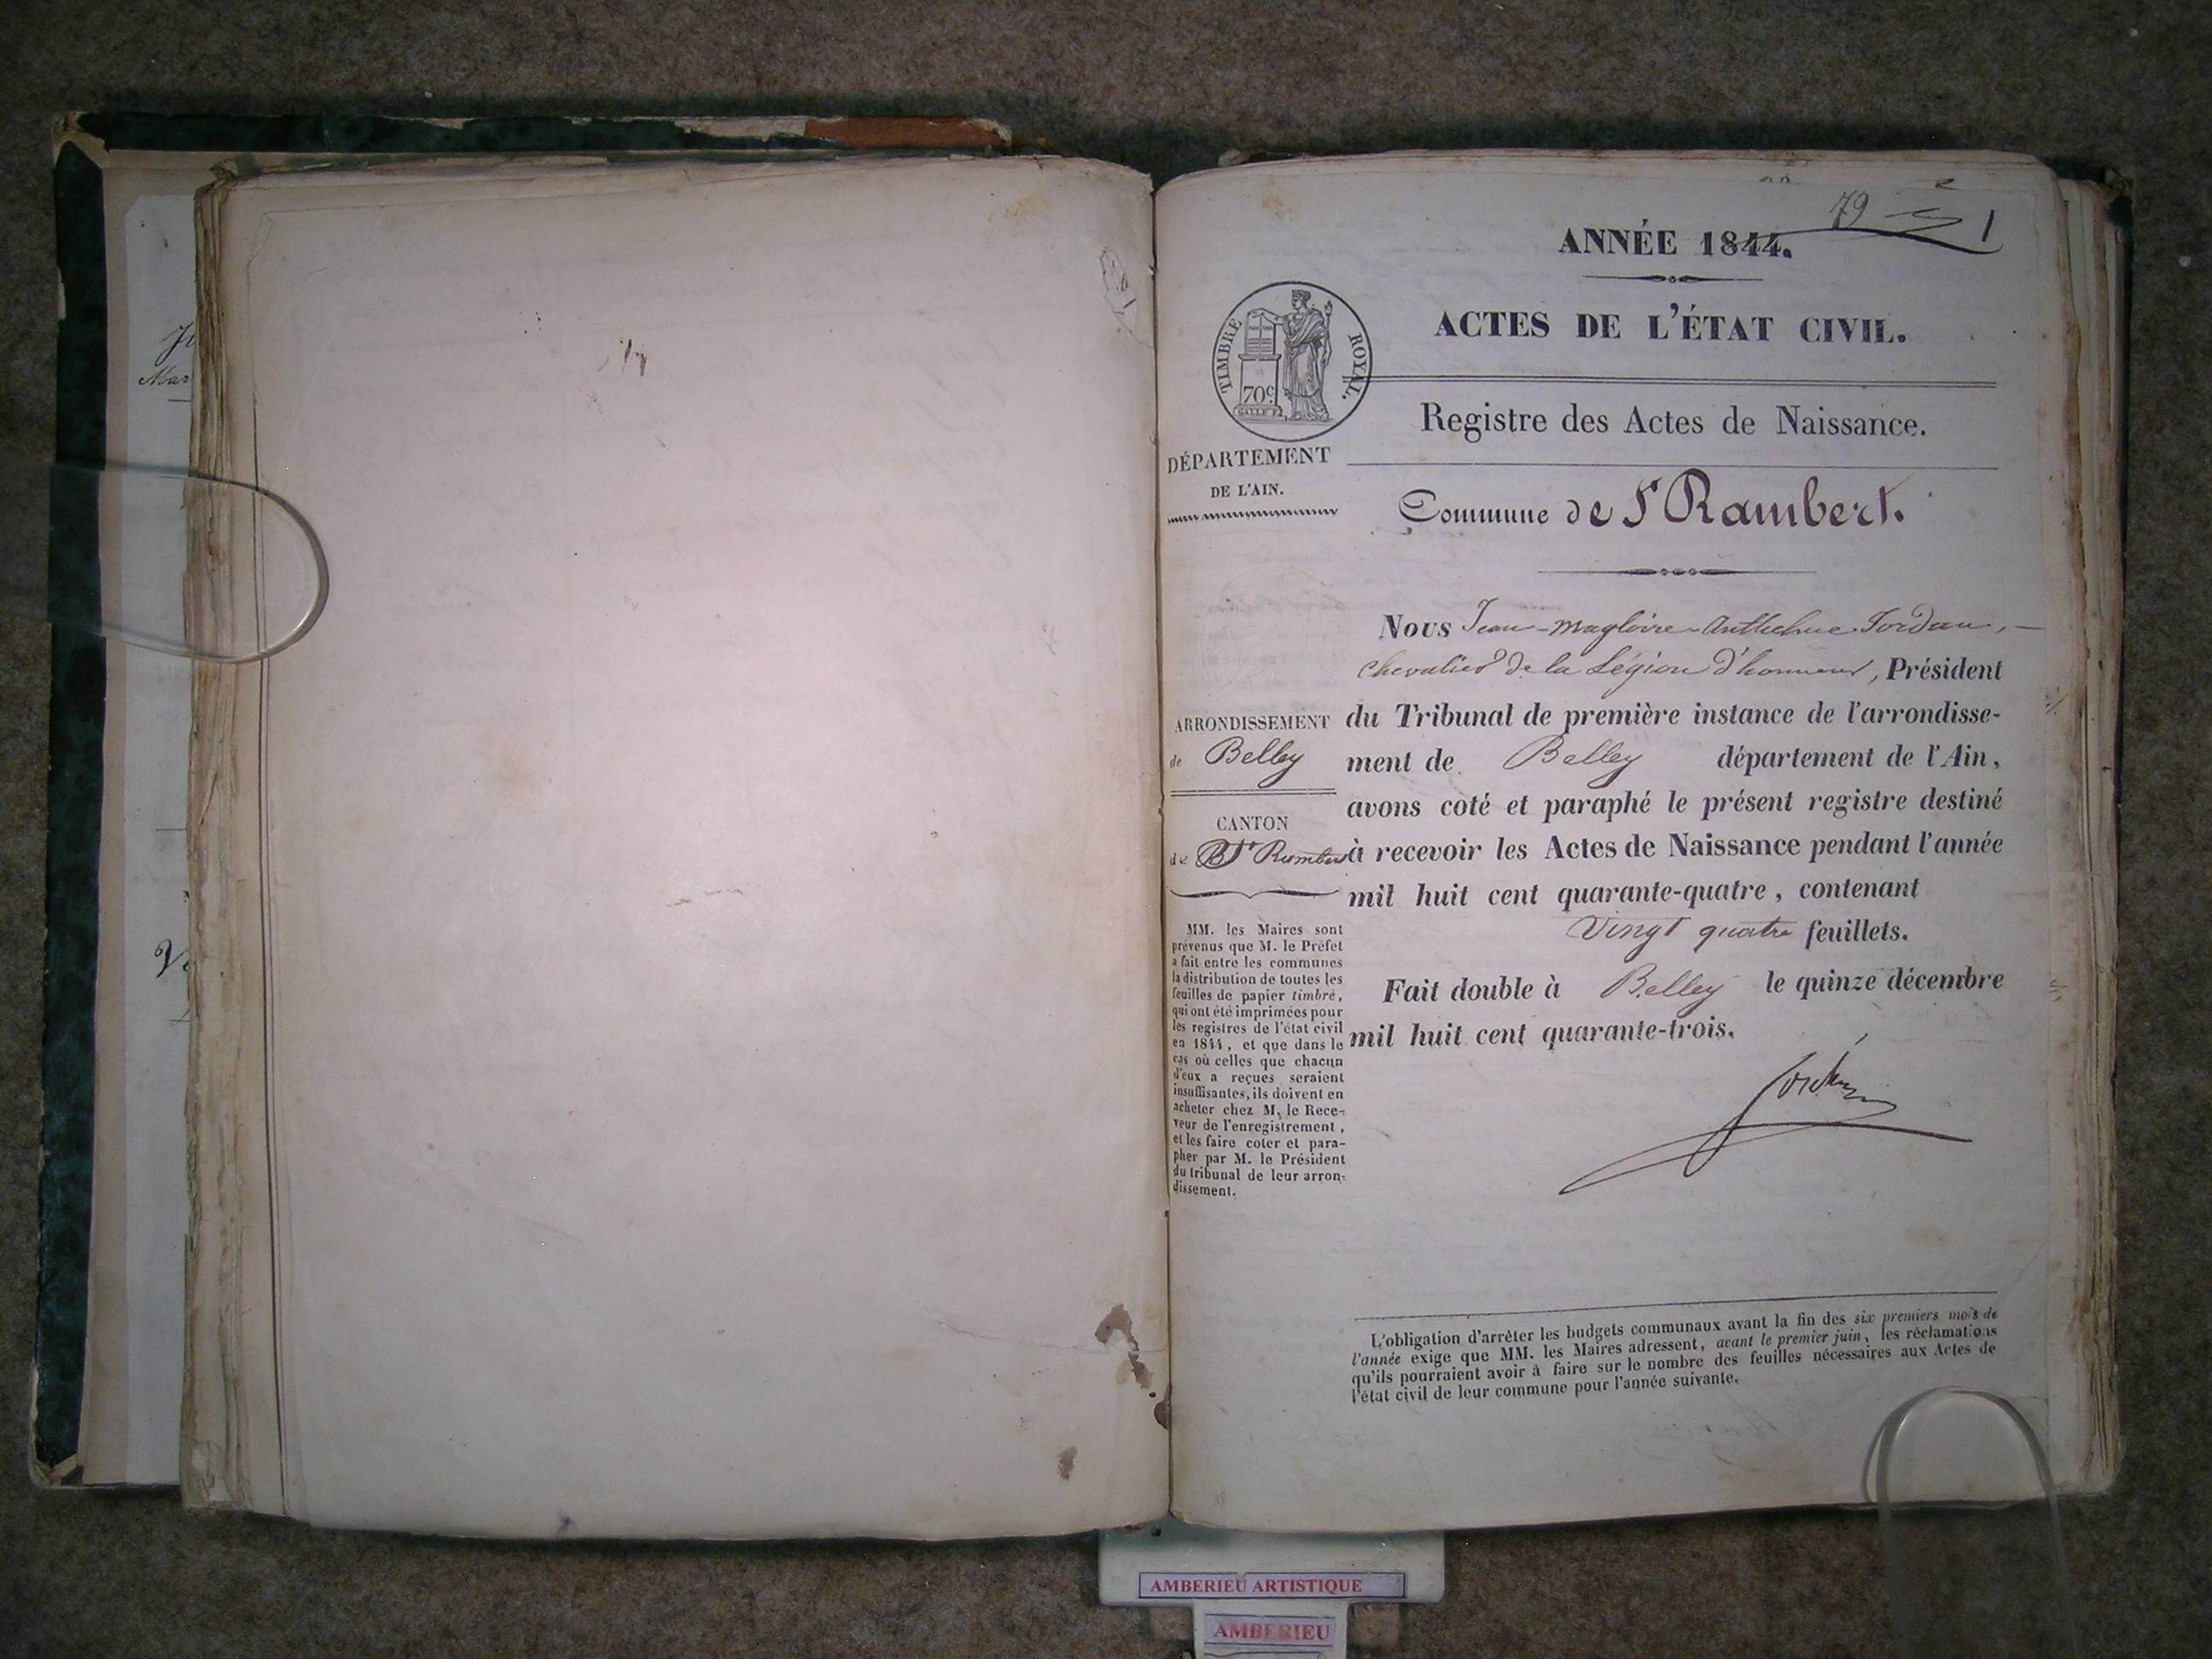 79
1
ANNÉE 1844.
ACTES DE L'ÉTAT CIVIL.
TIMBRE ROYAL.
70c
GALLE F.
Registre des Actes de Naissance.
DÉPARTEMENT
DE L'AIN.
Commune de St Rambert.
Nous Jean-Magloire-Anthelme Jordan,
chevalier de la Légion d'honneur, Président
du Tribunal de première instance de l'arrondisse-
ment de Belley département de l'Ain,
avons coté et paraphé le présent registre destiné
à recevoir les Actes de Naissance pendant l'année
mil huit cent quarante-quatre, contenant
Vingt quatre feuillets.
Fait double à Belley le quinze décembre
mil huit cent quarante-trois.
Jordan
ARRONDISSEMENT
de Belley
CANTON
de St Rambert
MM. les Maires sont
prévenus que M. le Préfet
a fait entre les communes
la distribution de toutes les
feuilles de papier timbré,
qui ont été imprimées pour
les registres de l'état civil
en 1844, et que dans le
cas où celles que chacun
d'eux a reçues seraient
insuffisantes, ils doivent en
acheter chez M. le Rece-
veur de l'enregistrement,
et les faire coter et para-
pher par M. le Président
du tribunal de leur arron-
dissement.
L'obligation d'arrêter les budgets communaux avant la fin des six premiers mois de
l'année exige que MM. les Maires adressent, avant le premier juin, les réclamations
qu'ils pourraient avoir à faire sur le nombre des feuilles nécessaires aux Actes de
l'état civil de leur commune pour l'année suivante.
AMBERIEU ARTISTIQUE
AMBERIEU